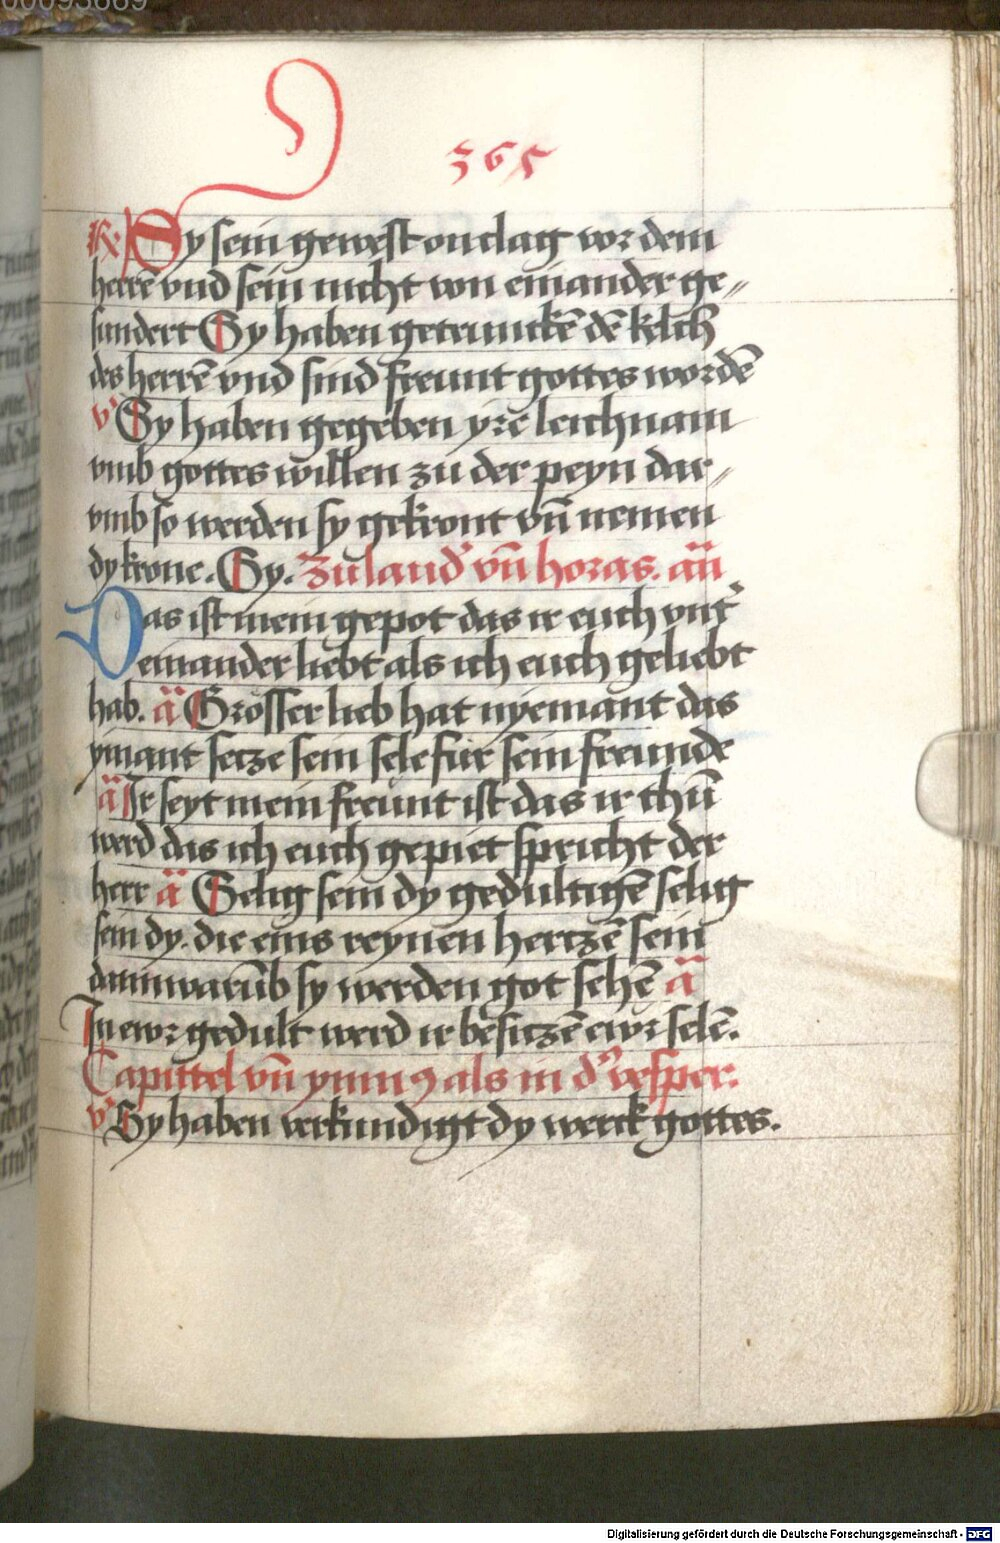 00093669
365
R: Sy sein gewest on clag vor dem
herrē vnd sein nicht von einander ge„
sundert Sy haben getrunckē dē kelch
des herrē vnd sind freunt gottes wordē
v' Sy haben gegeben yrē leichnam
vmb gottes willen zu der peyn dar„
vmb so werden sy gekront vn̄ nemen
dy krone. Sy. Zu laud' vn̄ horas. an̄
Das ist mein gepot das ir euch vnt'
einander liebt als ich euch geliebt
hab. ā Grösser lieb hat nyemant das
ymant setze sein sele für sein freunde
ā Ir seyt mein freunt ist das ir thū
werd das ich euch gepiet spricht der
herr ā Selig sein dy gedultigē selig
sein dy. die eins reynen hertzē sein
dann warūb sy werden got sehē ā
In ewr gedult werd ir besitzē ewr selē.
Capittel vn̄ ymnꝯ als in d' vesper.
v' Sy haben verkundigt dy werck gottes.
Digitalisierung gefördert durch die Deutsche Forschungsgemeinschaft - DFG